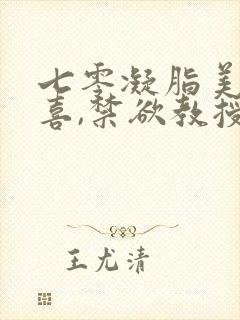 七零凝脂美
喜,禁欲教授
王尤清